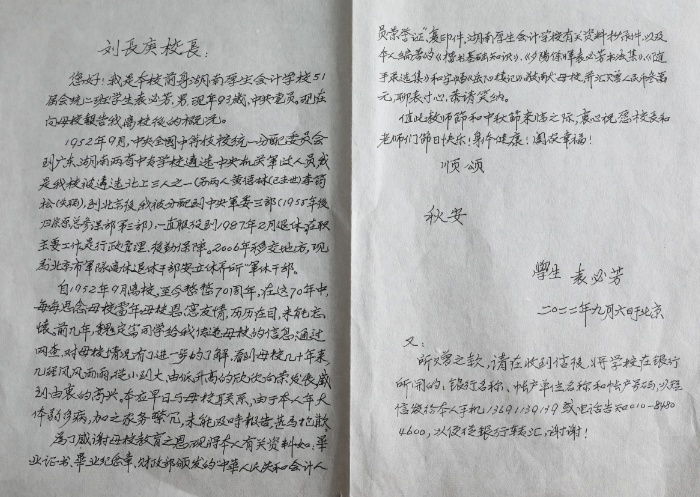 刘長庚校長：
您好！我是本校前身湖南厚生会计学校51
届会统二班学生袁必芳，男，现年93岁，中共党员。现在
向母校报告我离校后的概况。
1952年9月，中央全国中等技校统一分配委员会
到广东、湖南两省中专学校遴选中央机关军政人员，我
是我校被遴选北上三人之一
到北京后，我被分配到中央军委三部（1955年后
归总参三部），一直服役到1987年2月退休。在职
主要工作是行政管理，后勤保障。2006年移交地方，现
为北京市军队离休退休干部安立休养所军休干部。
自1952年9月离校，至今整整70周年，在这70年中，
每每思念母校当年母校恩、窗友情，历历在目，未能忘
怀。前几年，魏定宙同学给我传递母校的信息，通过
网查，对母校情况有了进一步的了解，看到母校几十年来
几经风风雨雨，从小到大，由低升高的欣欣向荣发展，感
到由衷的高兴。本应早日与母校联系，由于本人年大
体弱多病，加之家务繁冗，未能及时报告，甚为抱歉。
为了感谢母校教育之恩，现将本人有关资料如：毕
业证书、毕业纪念章、财政部颁发的“中華人民共和国会计人
员荣誉证”复印件，湖南厚生会计学校有关资料抄件，以及
本人编著的《楷书基础知识》、《夕阳保晖袁必芳书法集》、
元，聊表寸心，恭请笑纳。
值此教师节和中秋节来临之际，衷心祝您校长和
老师们节日快乐！身体健康！阖家幸福！
顺颂
秋安
学生 袁必芳
二〇二二年九月六日于北京
又：
所赠之款，请在收到信后，将学校在银行
所用的：银行名称、帐户单位名称和帐户号码，以短
信发给本人手机13691139139或电话告知010-8480
4600，以便从银行转汇，谢谢！